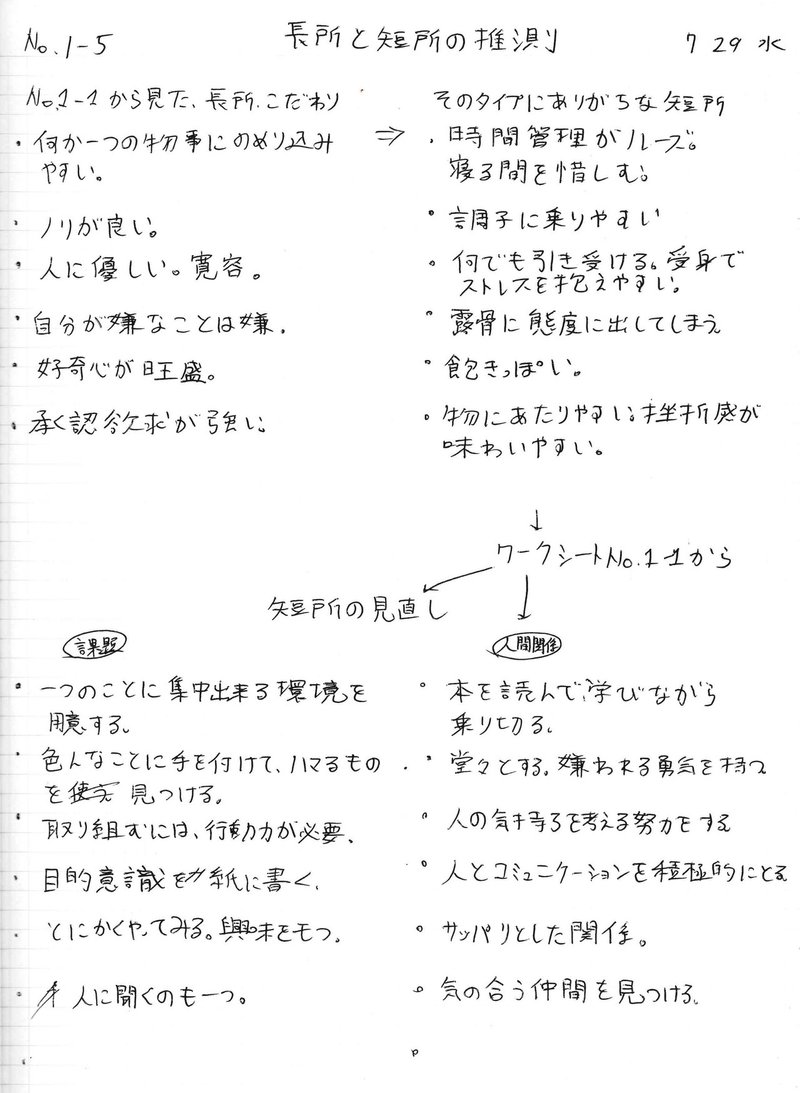 No.1-5
長所と短所の推測
7 29 水
No.1-1から見た、長所、こだわり
・何か一つの物事にのめり込み
やすい。
・ノリが良い。
・人に優しい。寛容。
・自分が嫌なことは嫌。
・好奇心が旺盛。
・承く認欲求が強い。
⇒
そのタイプにありがちな短所
・時間管理がルーズ。
寝る間を惜しむ。
・調子に乗りやすい
・何でも引き受ける。受身で
ストレスを抱えやすい。
・露骨に態度に出してしまう
・飽きっぽい。
・物にあたりやすい。挫折感が
味わいやすい。
↓
ワークシートNo.1-1から
短所の見直し
課題
・一つのことに集中出来る環境を
用意する。
・色んなことに手を付けて、ハマるもの
を 見つける。
・取り組むには、行動力が必要。
・目的意識を 紙に書く、
・とにかくやってみる。興味をもつ。
・人に聞くのも一つ。
人間関係
・本を読んで、学びながら
乗り切る。
・堂々とする。嫌われる勇気を持つ
・人の気持ちを考える努力をする
・人とコミュニケーションを積極的にとる
・サッパリとした関係。
・気の合う仲間を見つける。